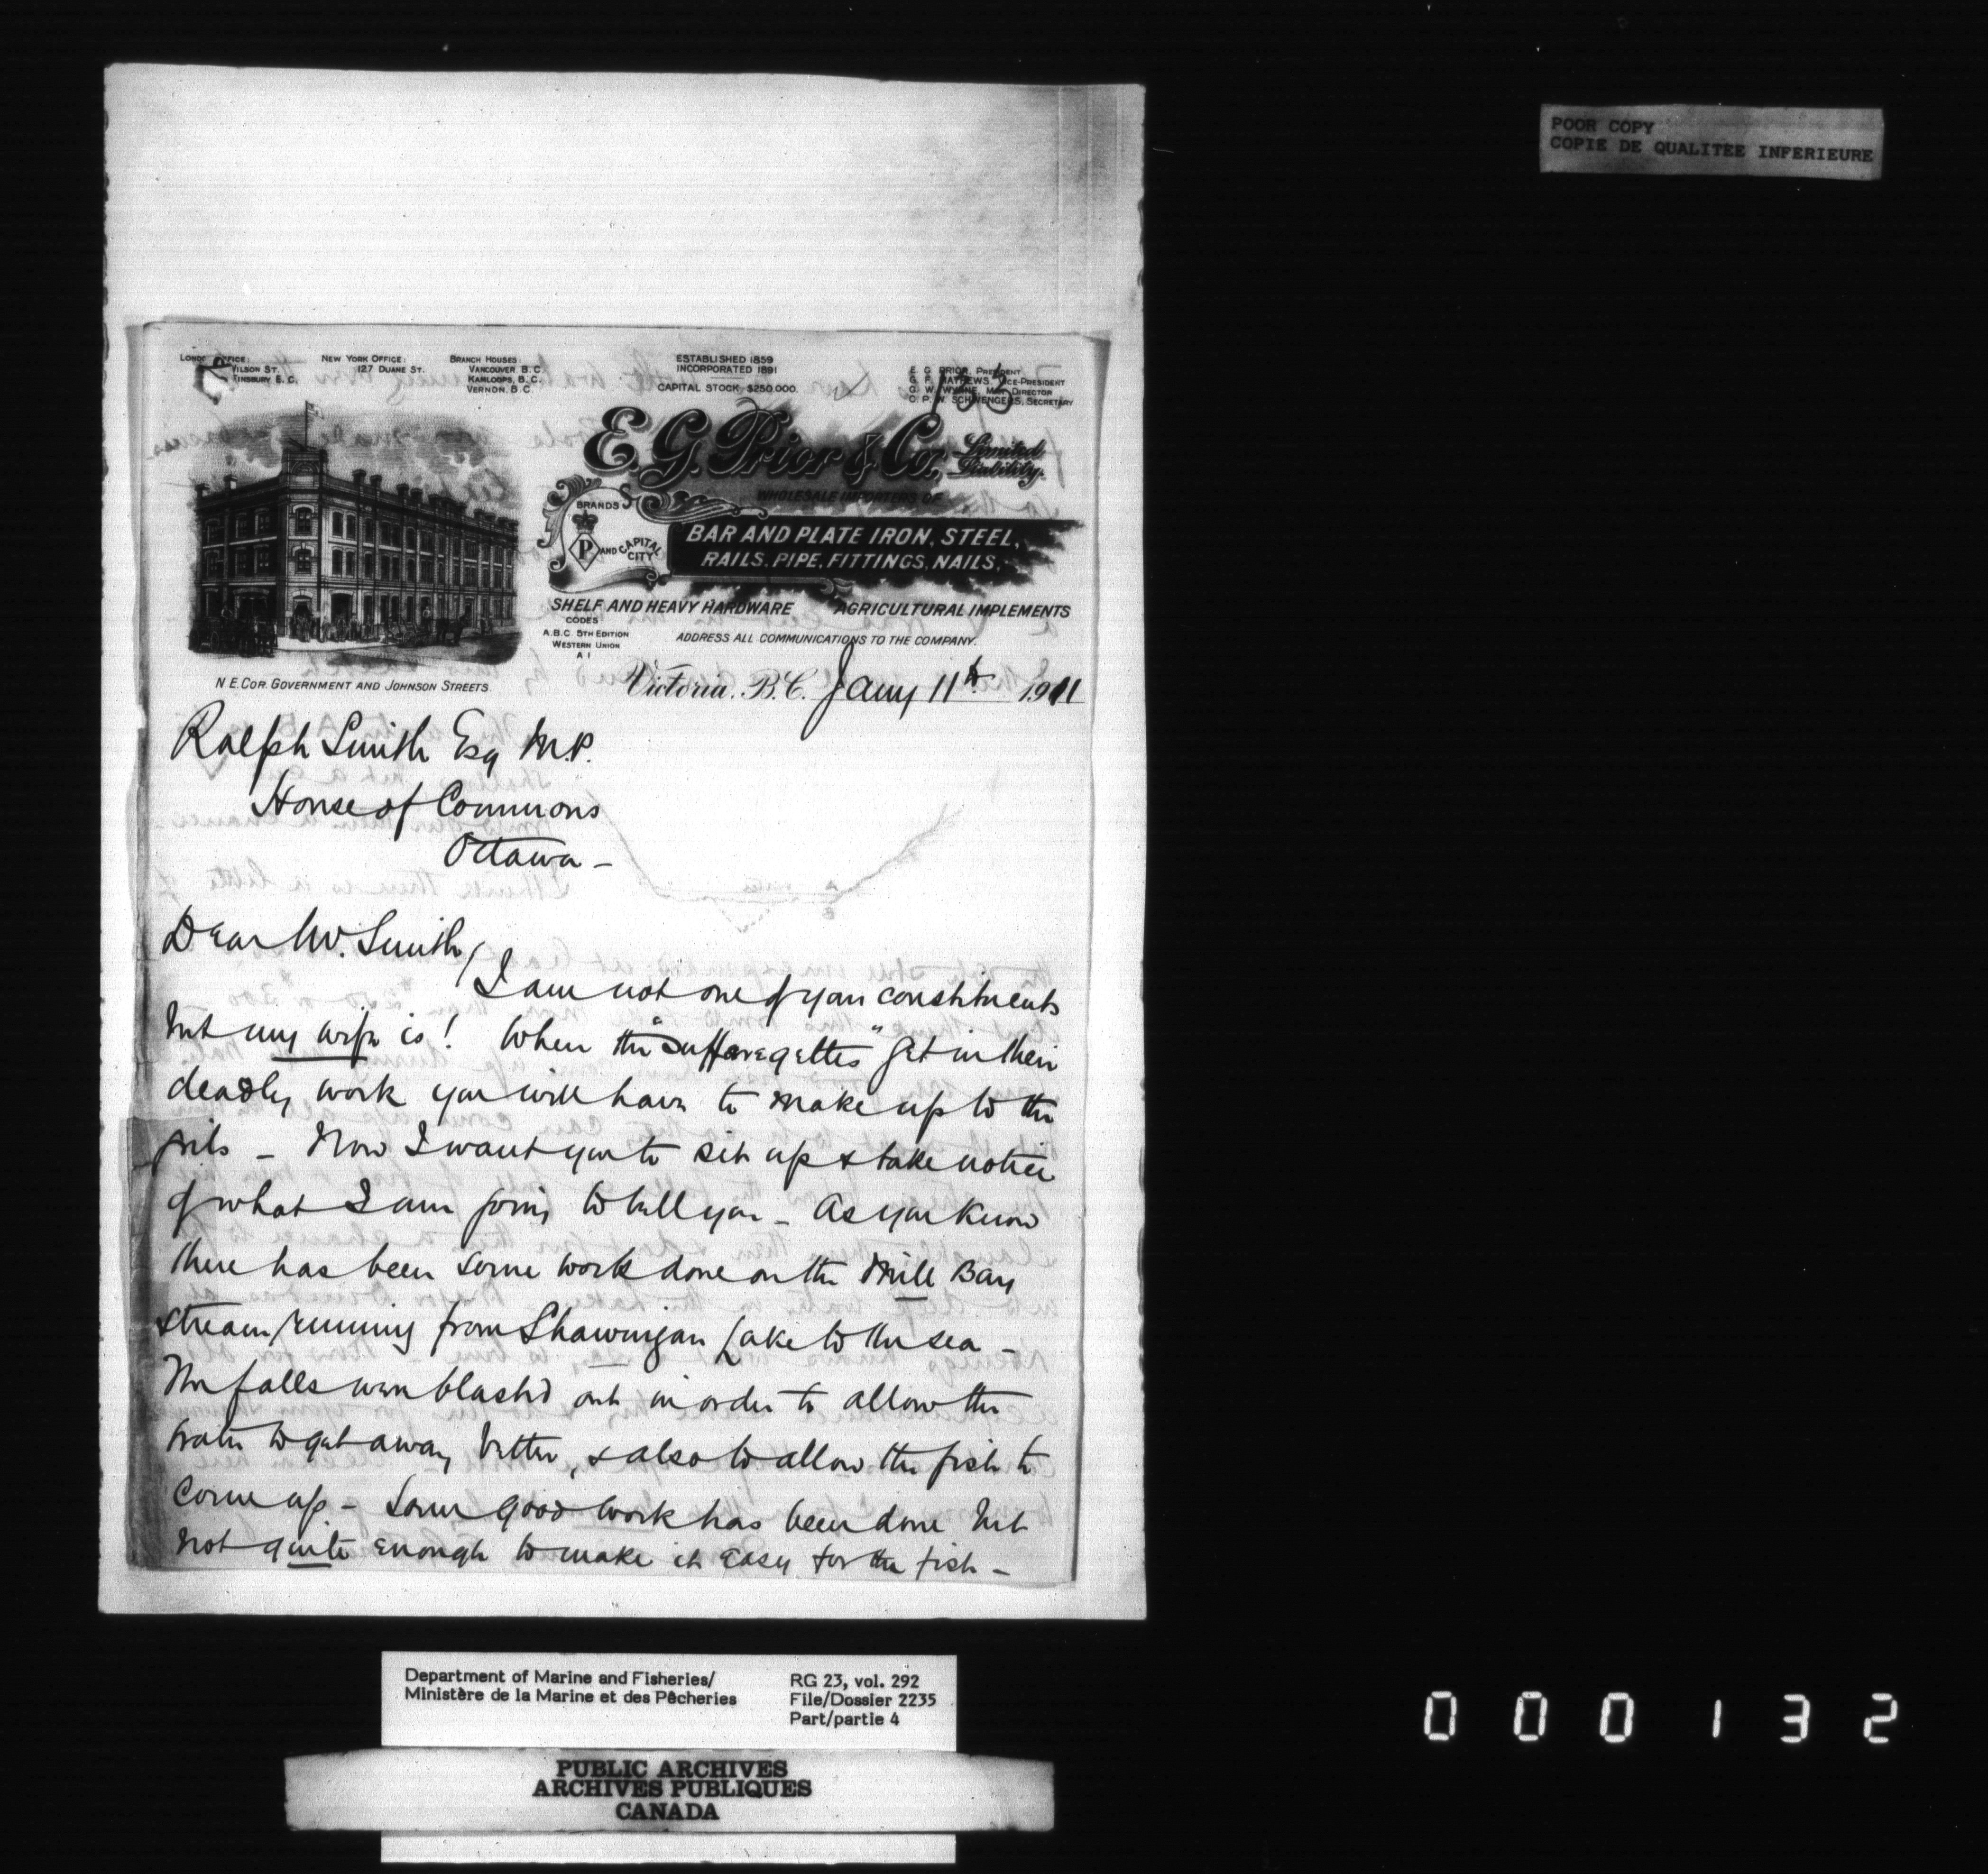 POOR COPY
COPIE DE QUALITEE INFERIEURE
NEW YORK OFFICE:
127 DUANE ST.
BRANCH HOUSES:
VANCOUVER B.C.
KAMLOOPS, B.C.
VERNON, B.C.
ESTABLISHED 1859
INCORPORATED 1891
CAPITAL STOCK, $250.000.
E. G. PRIOR, PRESIDENT
G. F. MATHEWS, VICE-PRESIDENT
G. W. WYNNE, MAN. DIRECTOR
C. P. W. SCHWENGERS, SECRETARY
133
E. G. Prior & Co., Limited Liability.
WHOLESALE IMPORTERS OF
BRANDS
P AND CAPITAL CITY
BAR AND PLATE IRON, STEEL,
RAILS, PIPE, FITTINGS, NAILS,
SHELF AND HEAVY HARDWARE AGRICULTURAL IMPLEMENTS
CODES
A.B.C. 5TH EDITION
WESTERN UNION
A 1
ADDRESS ALL COMMUNICATIONS TO THE COMPANY.
N.E. COR. GOVERNMENT AND JOHNSON STREETS
Victoria, B.C. Jany 11th 1911
Ralph Smith Esq M.P.
House of Commons
Ottawa –
Dear Mr. Smith,
I am not one of your constituents
but my wife is! When the "Suffaregettes" get in their
deadly work you will have to make up to the
girls – Now I want you to sit up & take notice
of what I am going to tell you – As you know
there has been some work done on the Mill Bay
stream running from Shawnigan Lake to the sea –
The falls were blasted out in order to allow the
water to get away better, & also to allow the fish to
come up – Some good work has been done but
not quite enough to make it easy for the fish –
Department of Marine and Fisheries/
Ministère de la Marine et des Pêcheries
RG 23, vol. 292
File/Dossier 2235
Part/partie 4
PUBLIC ARCHIVES
ARCHIVES PUBLIQUES
CANADA
000132